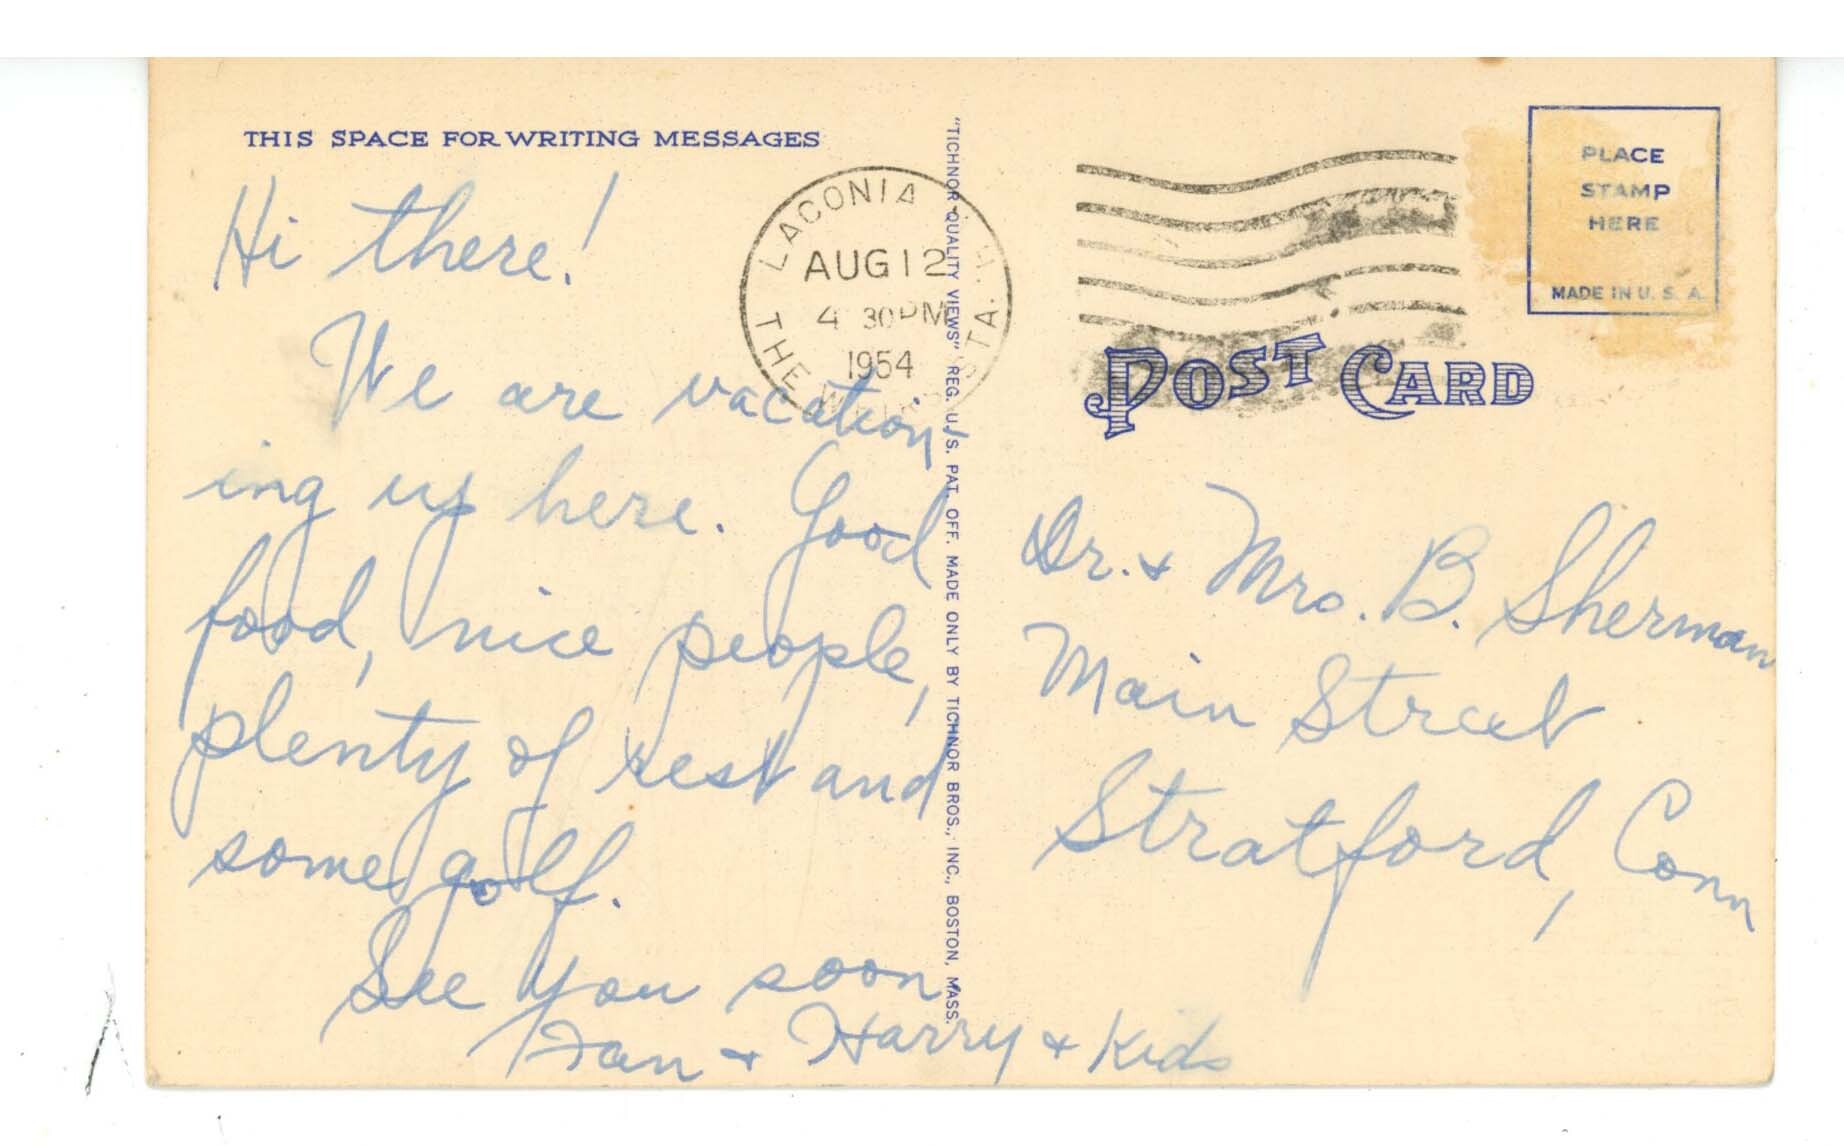 THIS SPACE FOR WRITING MESSAGES
Hi there!
We are vacation-
ing up here. Good
food, nice people,
plenty of rest and
some golf.
See you soon
Fran + Harry + Kids
LACONIA
AUG 12
4 30 PM
1954
THE WEIRS STA.
"TICHNOR QUALITY VIEWS" REG. U. S. PAT. OFF. MADE ONLY BY TICHNOR BROS., INC., BOSTON, MASS.
PLACE
STAMP
HERE
MADE IN U. S. A.
POST CARD
Dr. + Mrs. B. Sherman
Main Street
Stratford, Conn